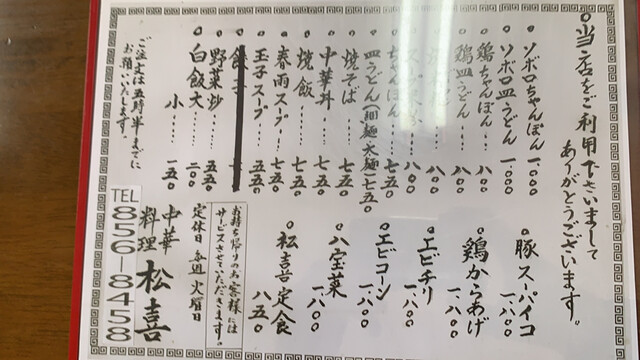 ◎当店をご利用下さいまして
ありがとうございます。
ソボロちゃんぽん 一、〇〇〇
ソボロ皿うどん 一、〇〇〇
鶏ちゃんぽん
鶏皿うどん
ちゃんぽん 七五〇
皿うどん(細麺・太麺) 七五〇
焼そば 七五〇
中華丼 七五〇
焼飯 七五〇
春雨スープ 七五〇
玉子スープ 五五〇
野菜炒 五五〇
白飯大 二〇〇
小 一五〇
ご注文は五時半までに
お願いいたします。
豚スーパイコ 一、八〇〇
鶏からあげ 一、八〇〇
エビチリ 一、八〇〇
エビコーン 一、八〇〇
八宝菜 一、八〇〇
松喜定食 八五〇
お持ち帰りのお客様には
サービスさせていただきます。
定休日 毎週火曜日
中華
料理
松喜
TEL
856-8458